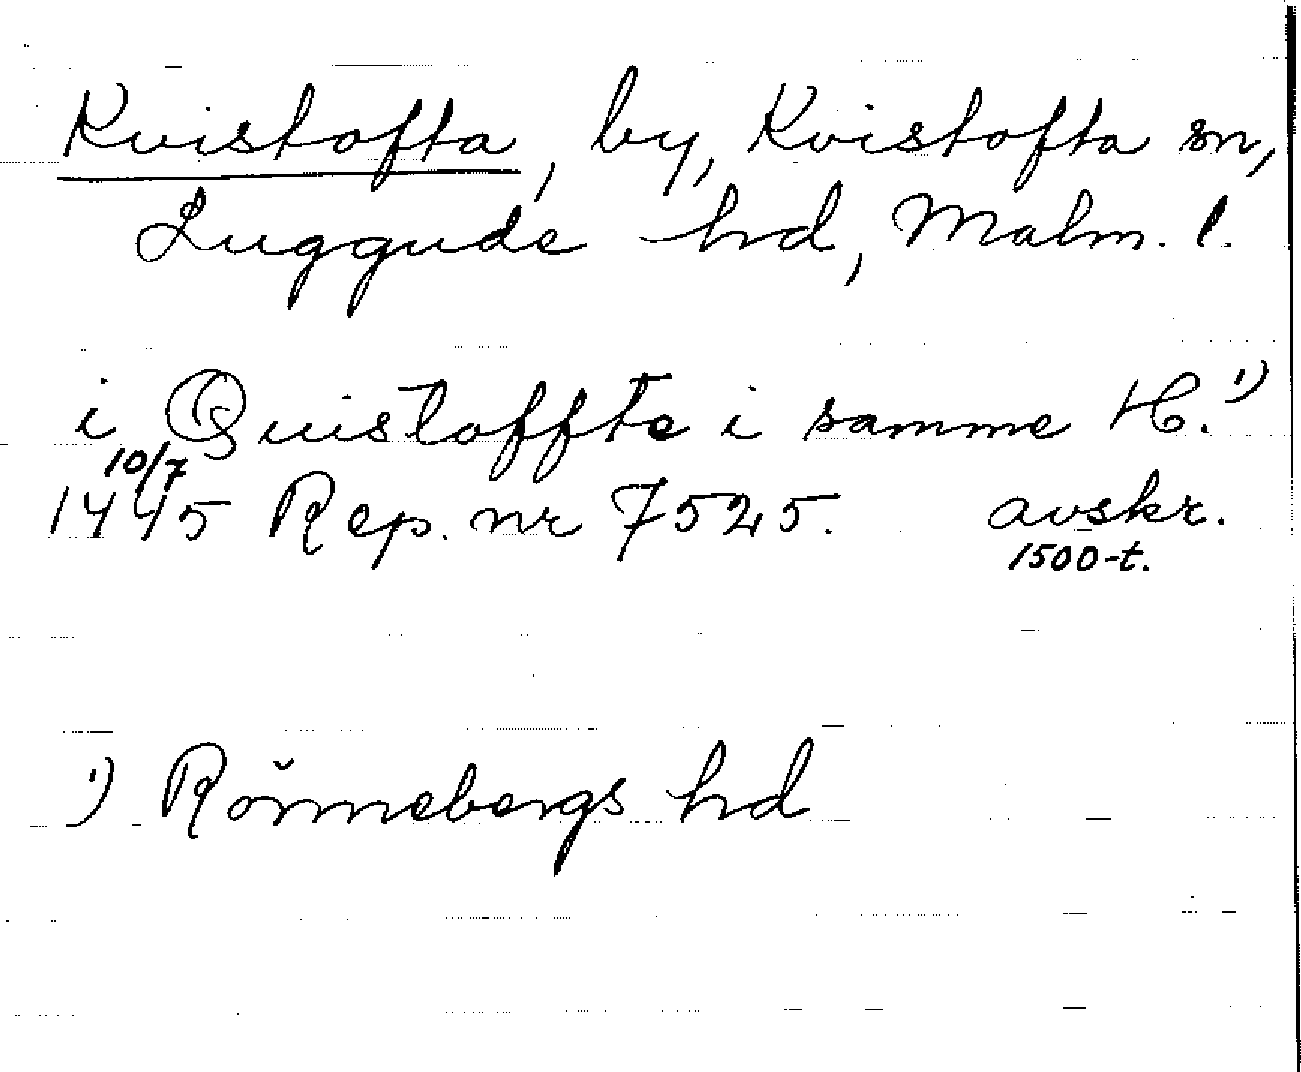 Kvistofta, by, Kvistofta sn,
Luggude hd, Malm. l.
i Quistoffte i samme H.¹)
10/7
1445 Rep. nr 7525. avskr.
1500-t.
¹) Rönnebergs hd